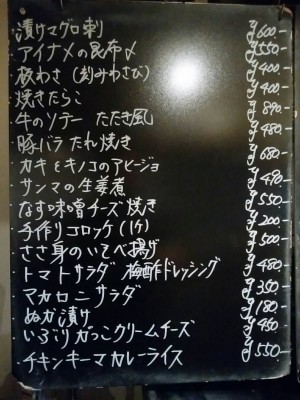 漬けマグロ刺 ¥600-
アイナメの昆布〆 ¥550-
板わさ（刻みわさび） ¥400-
焼きたらこ ¥400-
牛のソテー たたき風 ¥890-
豚バラ たれ焼き ¥480-
カキとキノコのアヒージョ ¥680-
サンマの生姜煮 ¥490-
なす味噌チーズ焼き ¥550-
手作りコロッケ（1ケ） ¥200-
ささ身のいそべ揚げ ¥500-
トマトサラダ 梅酢ドレッシング ¥480-
マカロニサラダ ¥350-
ぬか漬け ¥180-
いぶりがっこクリームチーズ ¥450-
チキンキーマカレーライス ¥550-